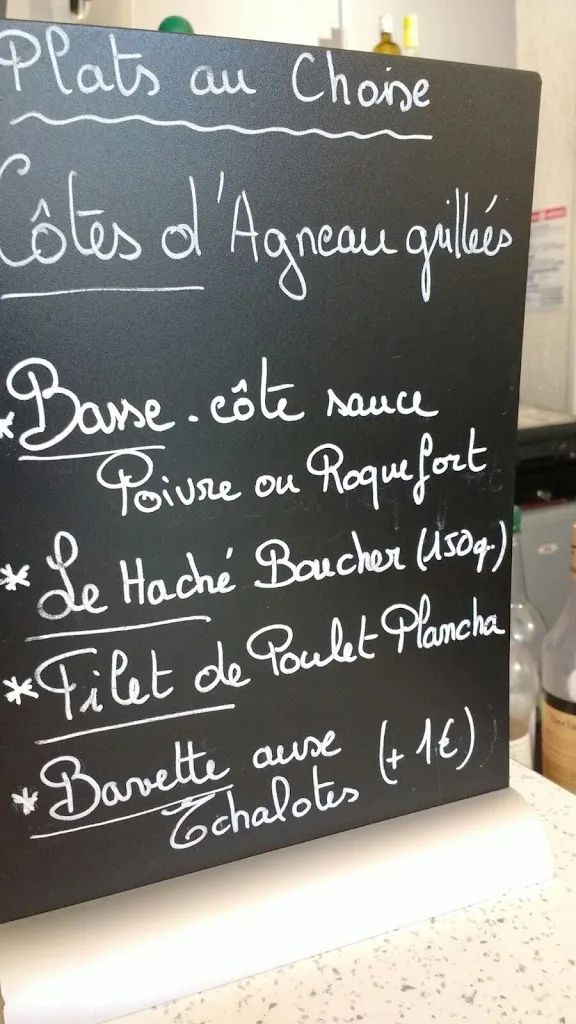 Plats au Choise
Côtes d'Agneau grilleés
* Basse-côte sauce
Poivre ou Roquefort
* Le Haché Boucher (150g.)
* Filet de Poulet Plancha
* Bavette auxe (+ 1€)
Echalotes